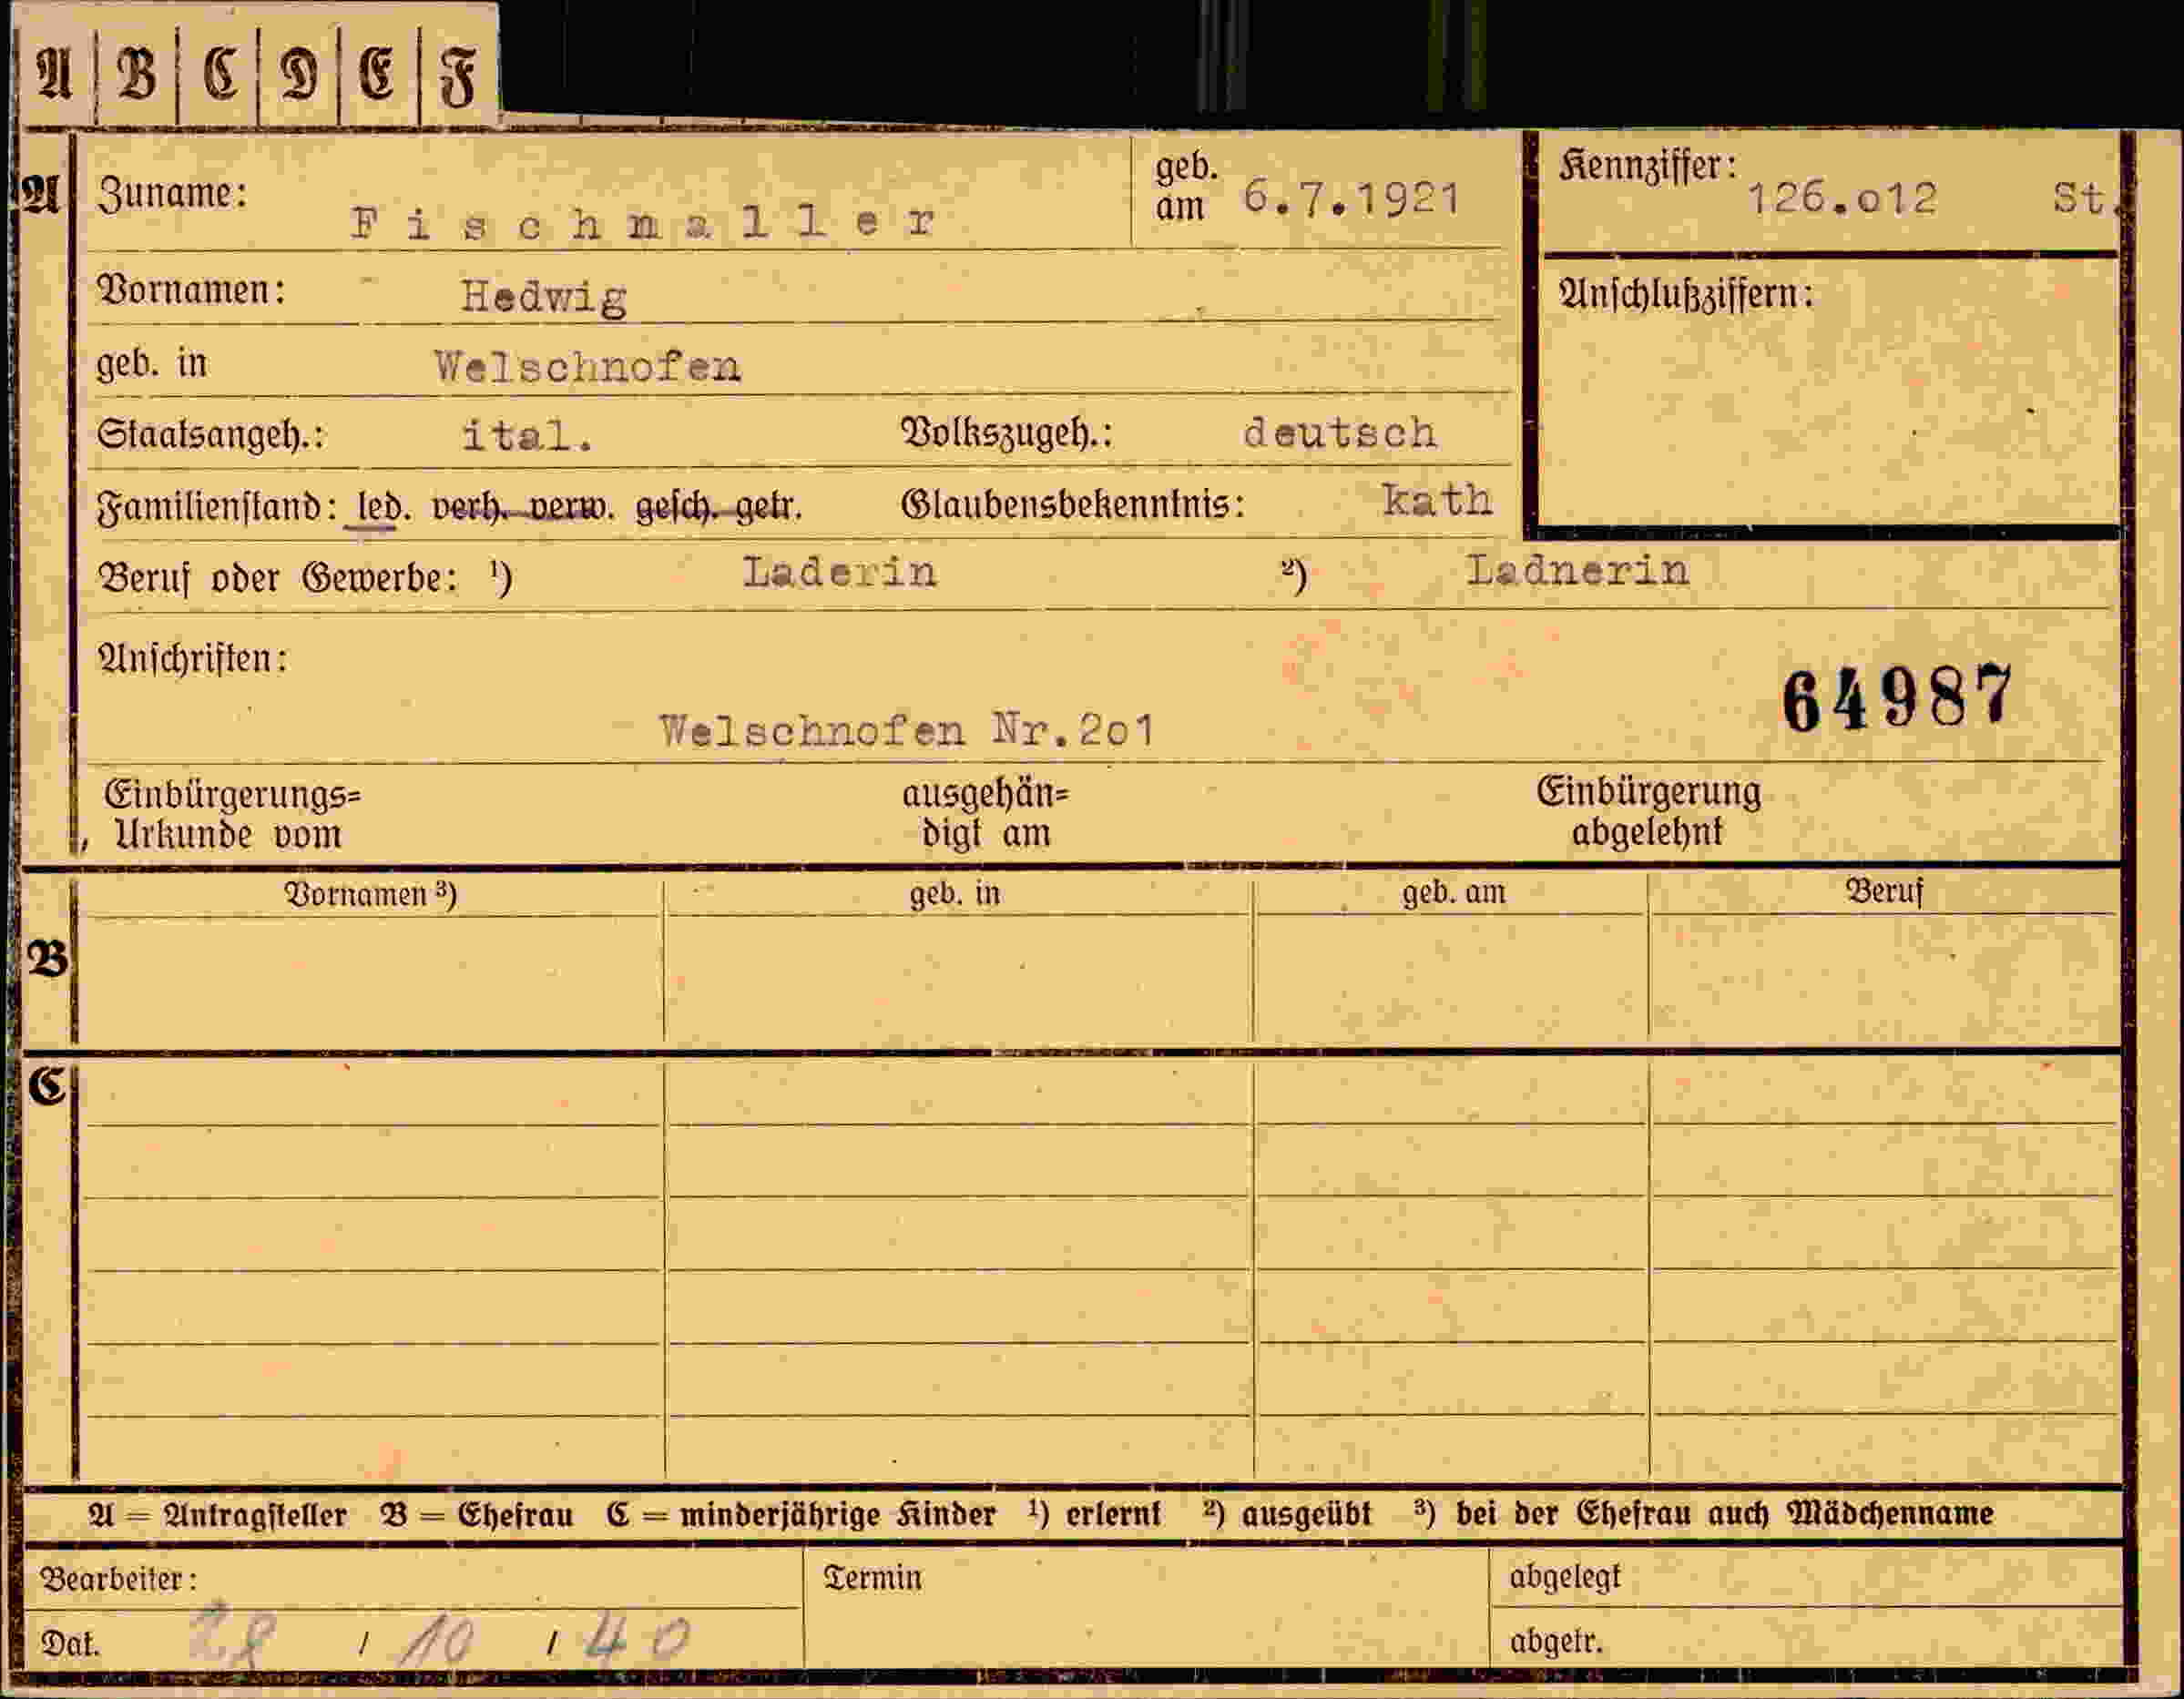 A B C D E F
A Zuname: Fischnaller geb. am 6.7.1921 Kennziffer: 126.o12 St.
Vornamen: Hedwig Anschlußziffern:
geb. in Welschnofen
Staatsangeh.: ital. Volkszugeh.: deutsch
Familienstand: led. verh. verw. gesch. getr. Glaubensbekenntnis: kath
Beruf oder Gewerbe: ¹) Laderin ²) Ladnerin
Anschriften:
64987
Welschnofen Nr.2o1
Einbürgerungs= ausgehän= Einbürgerung
Urkunde vom digt am abgelehnt
Vornamen ³) geb. in geb. am Beruf
B
C
A = Antragsteller B = Ehefrau C = minderjährige Kinder ¹) erlernt ²) ausgeübt ³) bei der Ehefrau auch Mädchenname
Bearbeiter: Termin abgelegt
Dat. 28 / 10 / 40 abgetr.